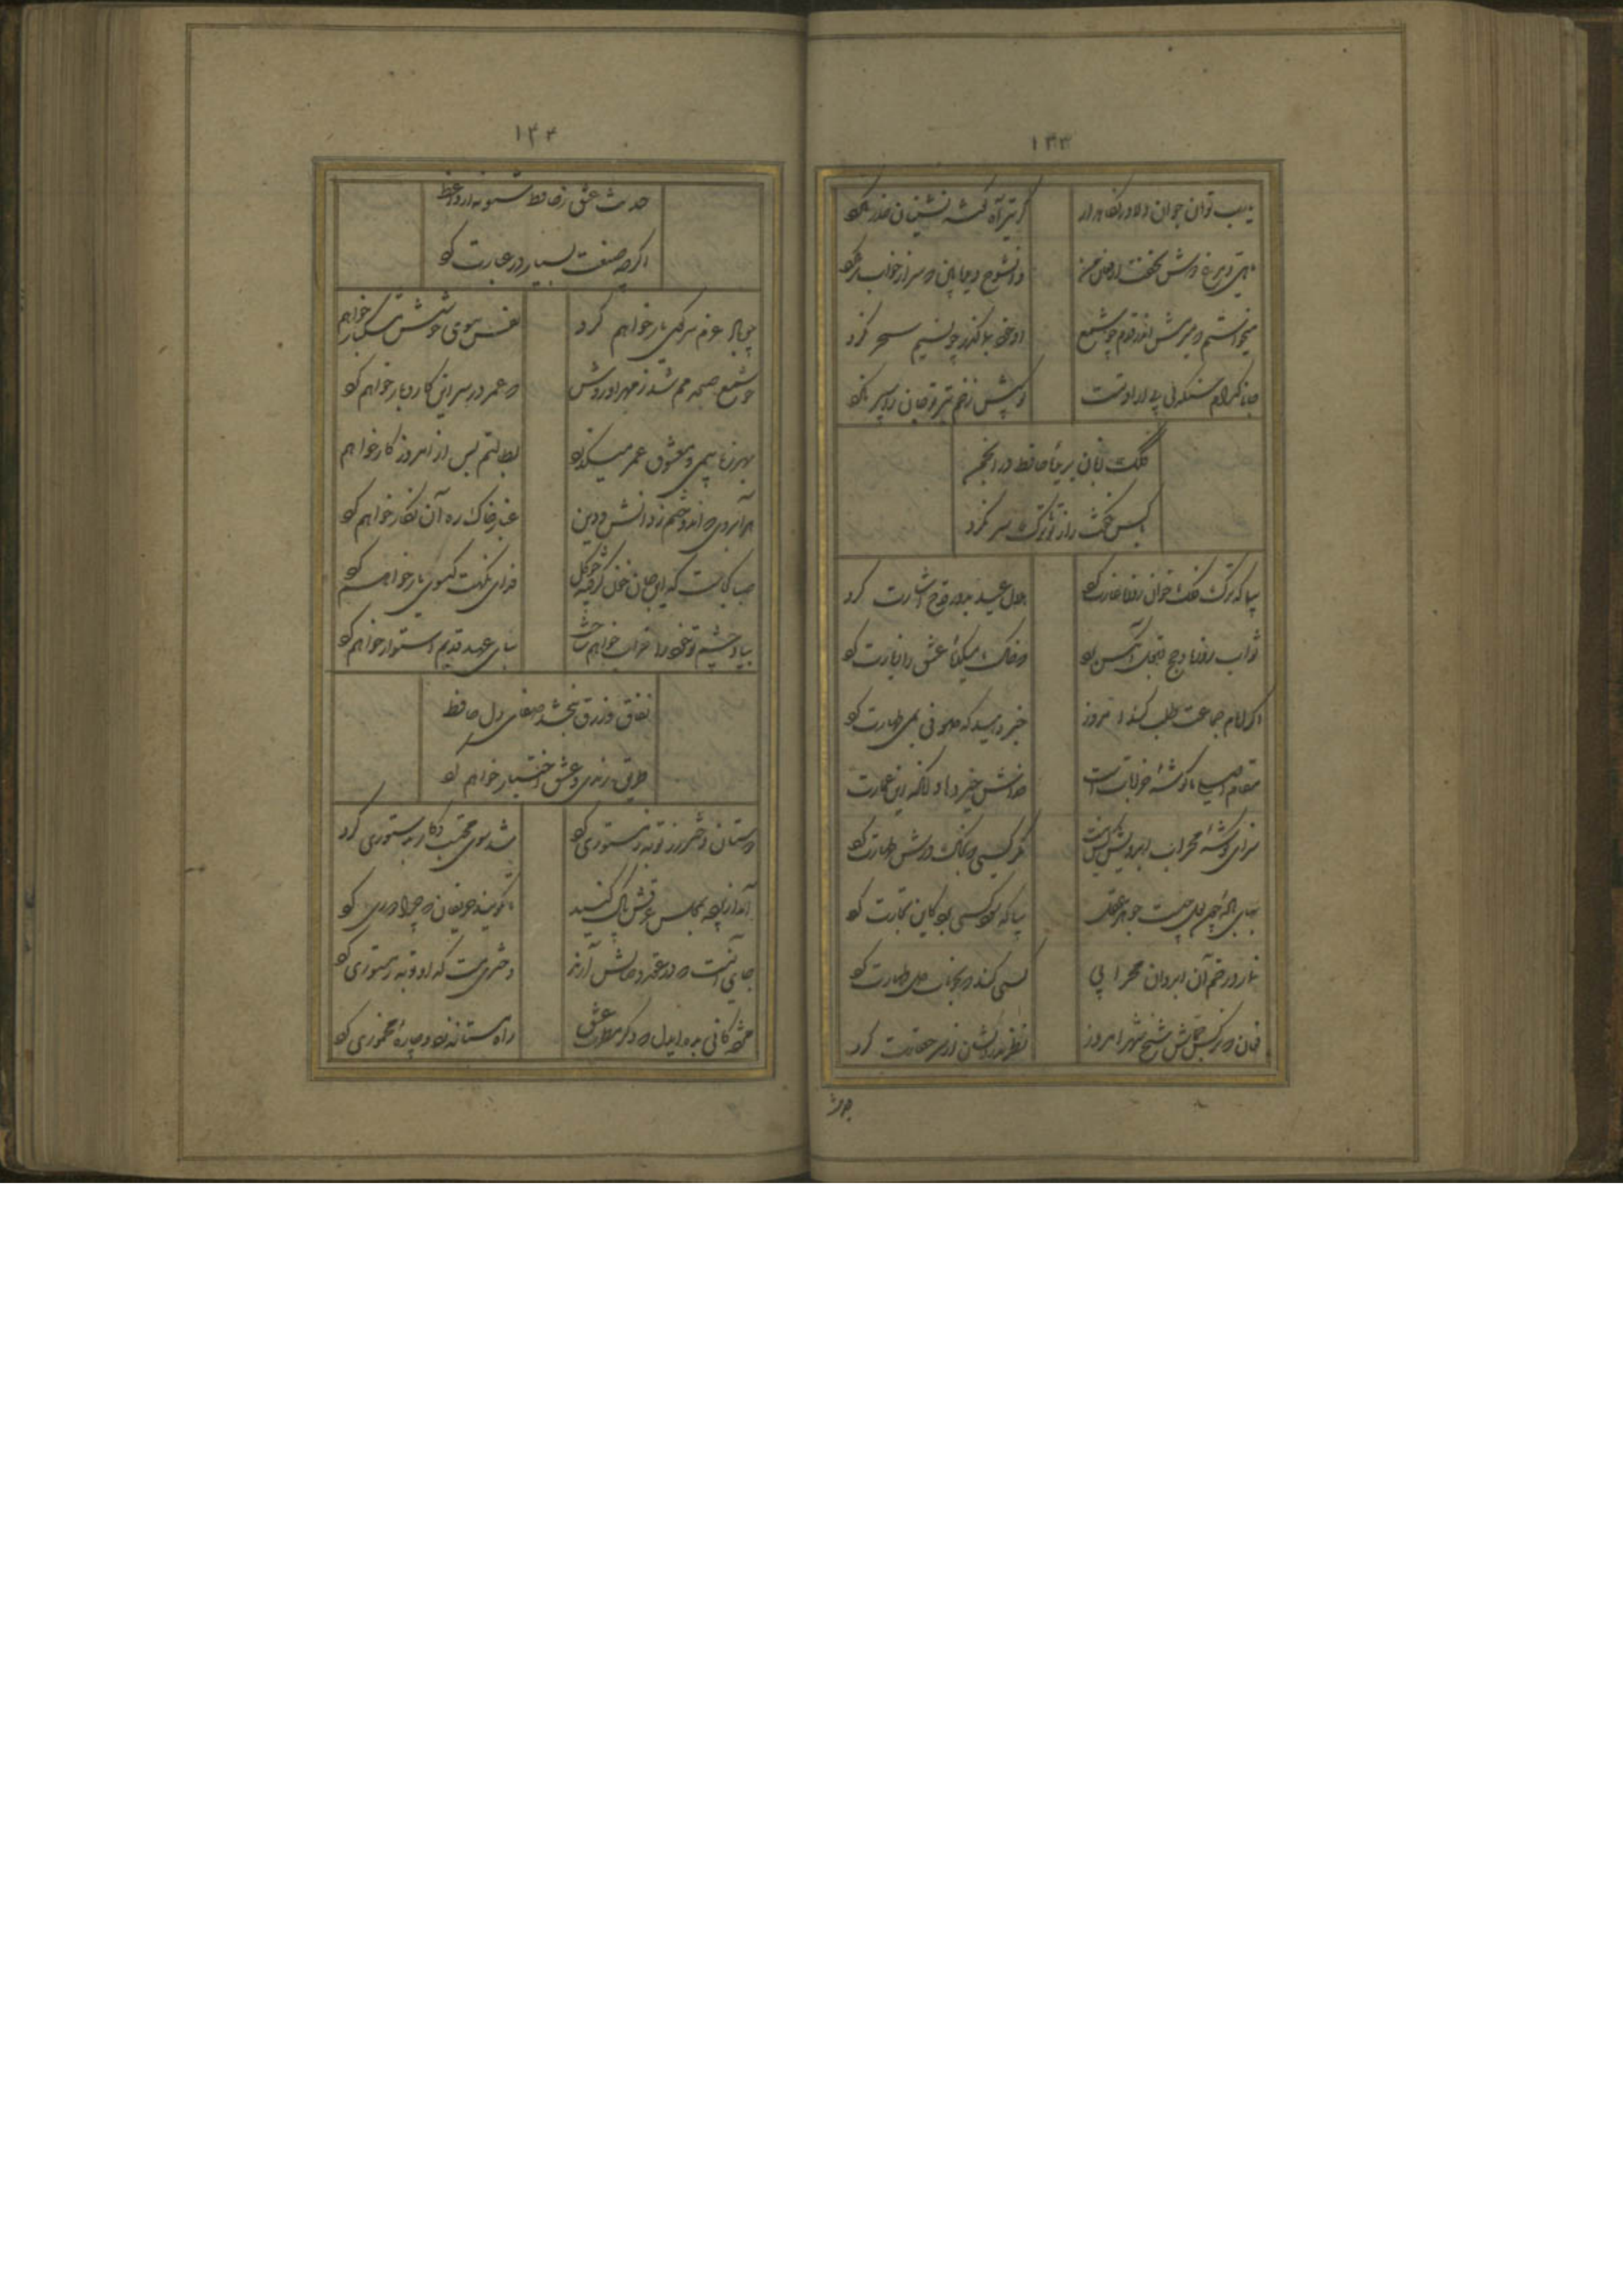 ۱۳۳
یارب تو آن جوان دلاور نگاه دار
کز تیر آه گوشه نشینان حذر نکرد
ماهی و مرغ دوش نخفت از فغان من
وان شوخ دیده بین که سر از خواب بر نکرد
میخواستم که میرمش اندر قدم چو شمع
او خود بما گذر چو نسیم سحر نکرد
جانا کدام سنگدل بی
کو پیش زخم تیر تو جان را سپر نکرد
کلک زبان بریده حافظ در انجمن
با کس نگفت راز تو تا ترک سر نکرد
بیا که ترک فلک خوان روزه غارت کرد
هلال عید بدور قدح اشارت کرد
ثواب روزه و حج قبول آنکس برد
که خاک میکده عشق را زیارت کرد
اگر امام جماعت طلب کند امروز
خبر دهید که صوفی بمی طهارت کرد
مقام اصلی ما گوشه خراباتست
خداش خیر دهاد آنکه این عمارت کرد
نماز گوشه محراب ابرویش
کسی کند که بخون
بهای باده چون لعل چیست جوهر عقل
بیا که سود کسی برد کاین تجارت کرد
نماز در خم آن ابروان محرابی
کسی کند که بخوناب دل طهارت کرد
فغان که نرگس جماش شیخ شهر امروز
نظر بدردکشان از سر حقارت کرد
حدیث
۱۳۴
حدیث عشق ز حافظ شنو نه از واعظ
اگرچه صنعت بسیار در عبارت کرد
چو باد عزم سر کوی یار خواهم کرد
نفس ببوی خوشش مشکبار خواهم
چو شمع صبحدمم شد ز مهر او روشن
که عمر در سر این کار و بار خواهم کرد
بهرزه بی می و معشوق عمر میگذرد
بطالتم بس از امروز کار خواهم
هر آبروی که اندوختم ز دانش و دین
غبار خاک ره آن نگار خواهم کرد
صبا کجاست که این جان خون گرفته چو گل
فدای نکهت گیسوی یار خواهم کرد
بیاد چشم تو خود را خراب خواهم ساخت
بنای عهد قدیم استوار خواهم کرد
نفاق و زرق نبخشد صفای دل حافظ
طریق رندی و عشق اختیار خواهم کرد
دوستان دختر رز توبه ز مستوری کرد
شد سوی محتسب و کار بدستوری کرد
آمد از پرده بمجلس عرقش پاک کنید
تا نگویند حریفان که چرا دوری کرد
جای آنست که در عقد وصالش آرند
دختری مست که او توبه ز مستوری کرد
مژدگانی بده ای دل که دگر مطرب عشق
راه مستانه زد و چاره مخموری کرد